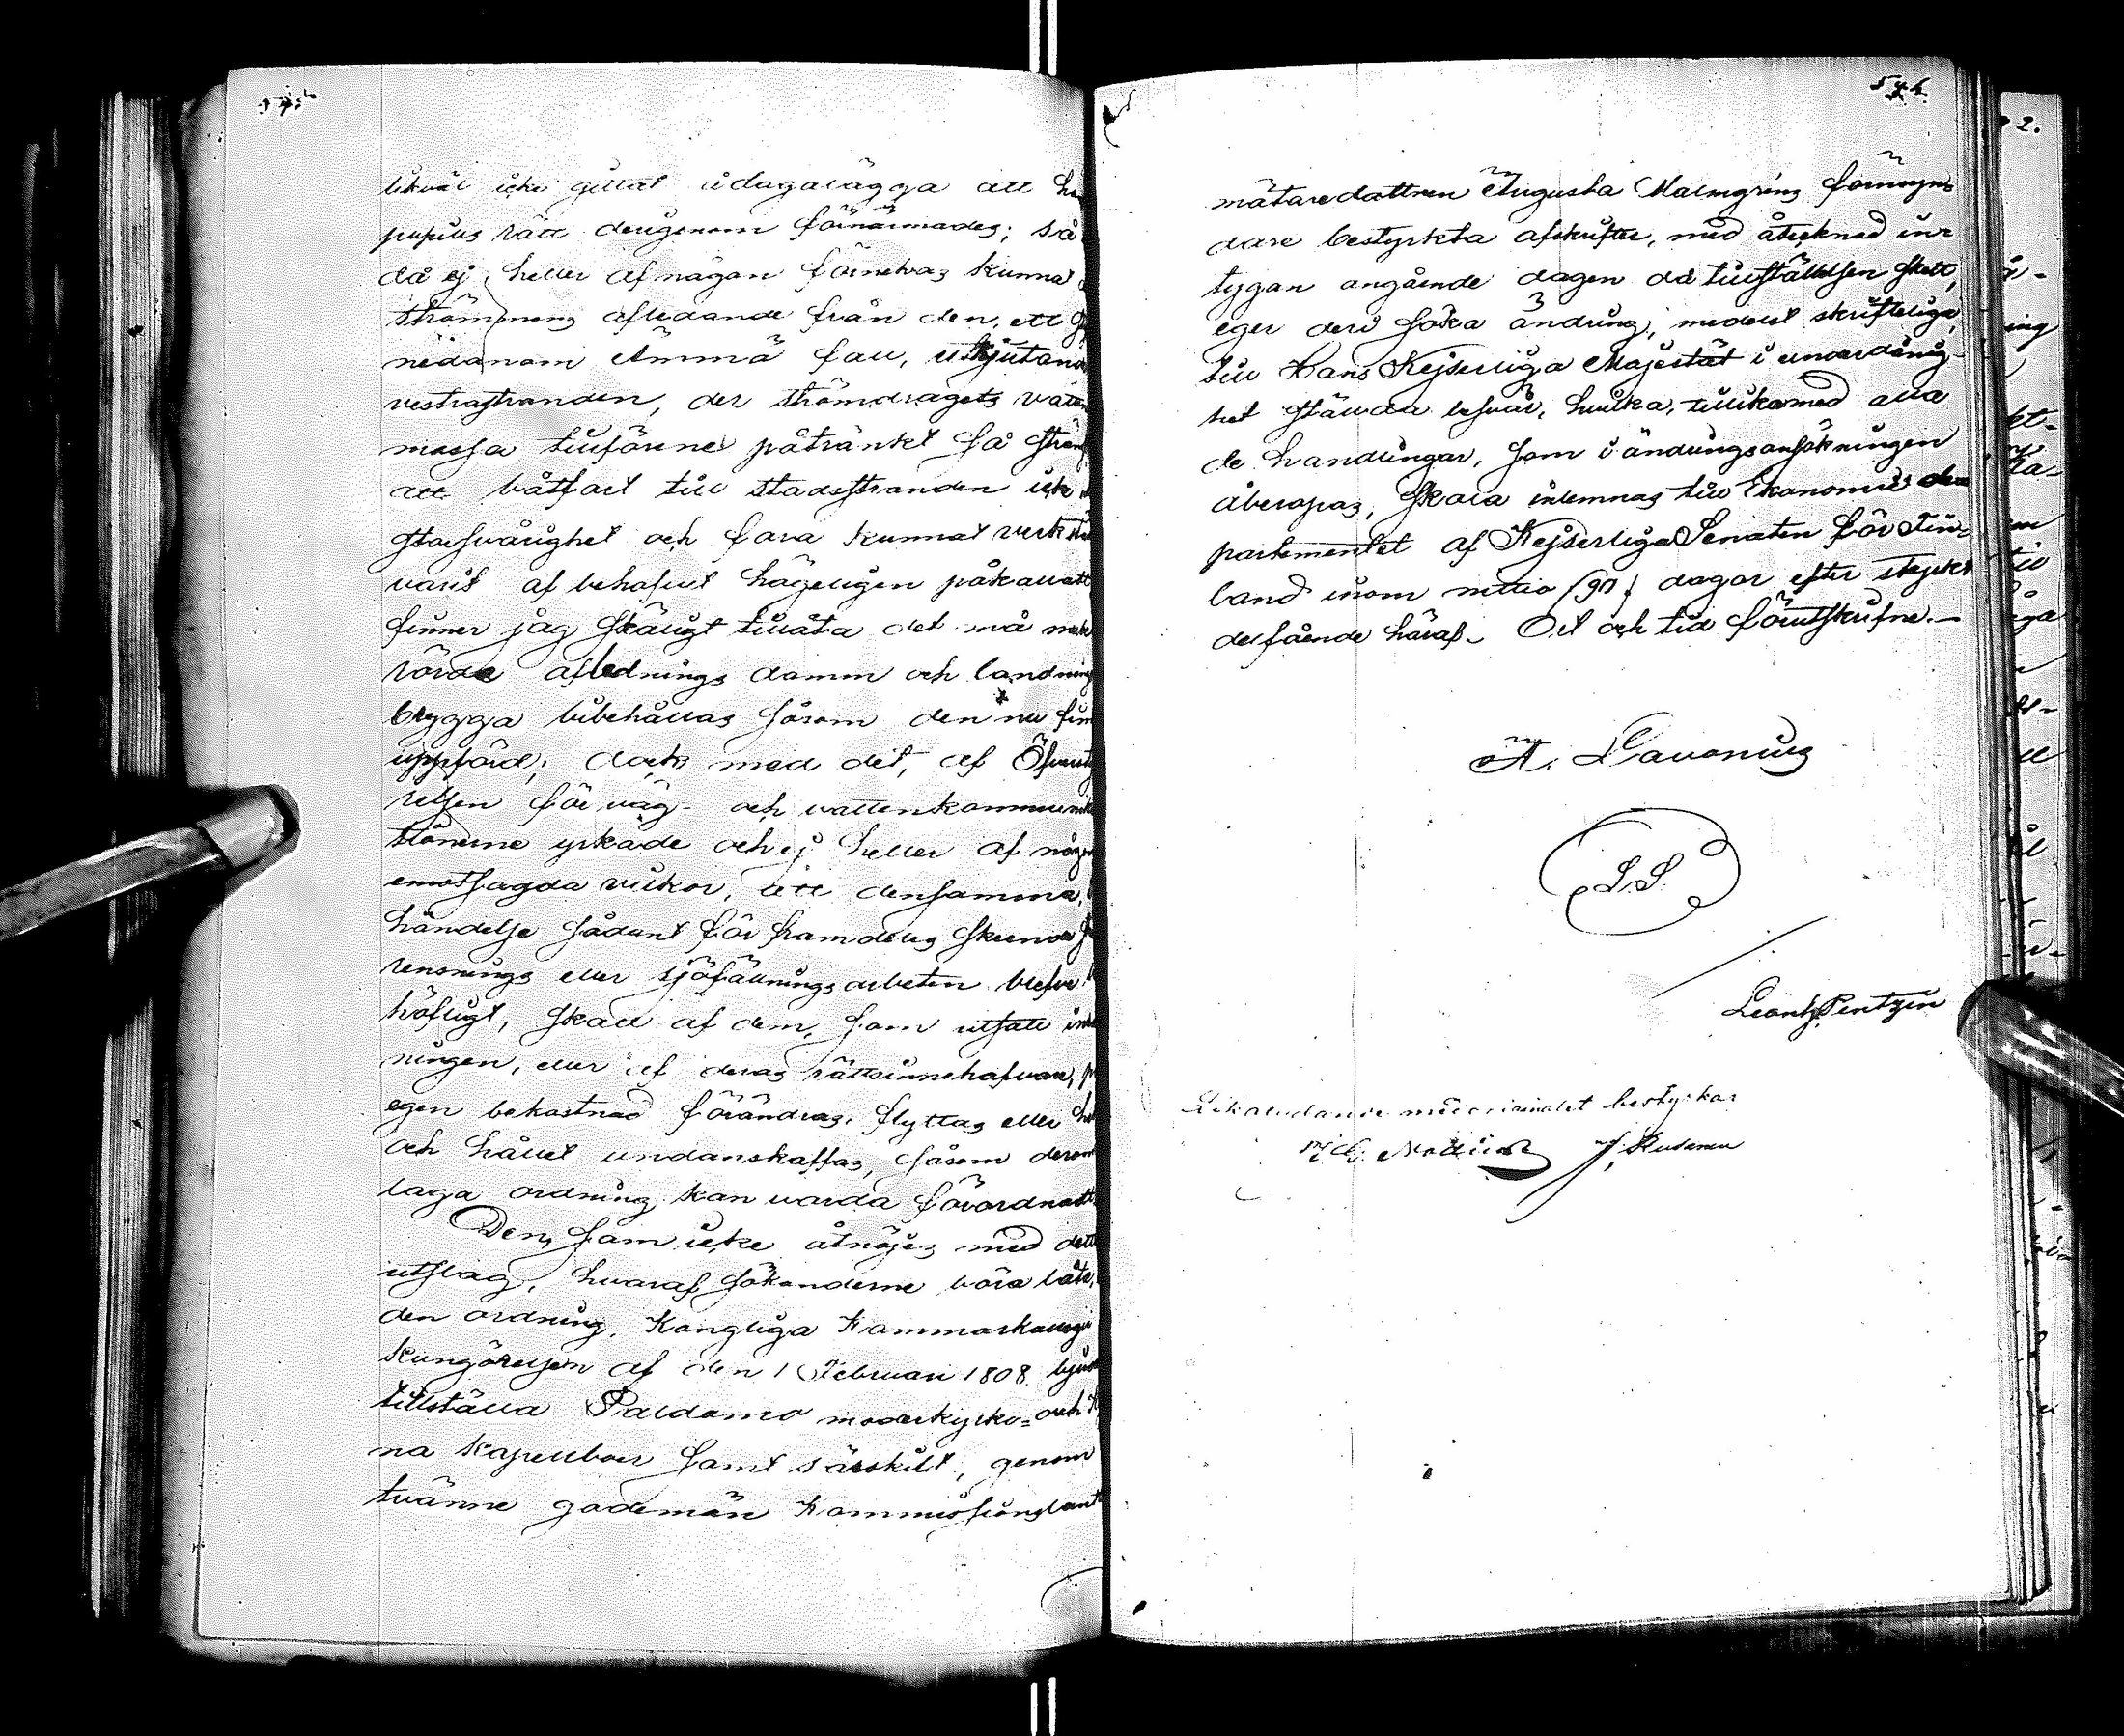 545
likväl icke gittat ådagalägga att
pupills rätt derigenom förnärmades; så
då ej heller af någon förnekas kunnat
strömmens afledande från den, ett
nedanom Ämmä fall, utskjutand
vestra stranden, der strömdragets vatten
massa tillförene påträngt så
att båtfart till stadsstranden icke
stor svårighet och fara kunnat verkstä
varit af behofvet högeligen påkallatt
finner jag skäligt tillåta det må
rörda aflednings damm och landnings
brygga bibehållas såsom den nu
uppförd; dock med det, af Öfversty
relsen för väg- och vattenkommunika
tionerne yrkade och ej heller af någon
emotsagda vilkor, att densamma,
händelse sådant för framdeles skeende
rensnings eller sjöfällnings arbeten blefve
höfligt, skall af dem, som utsatt
ningen, eller af deras rättsinnehafvare,
egen bekostnad förändras, flyttas eller
och hållet undanskaffas, såsom derom
laga ordning kan varda förordnadt.
Den, som icke åtnöjes med dett
utslag, hvaraf sökanderne böra låta,
den ordning, Kongliga Kammarkollegii
kungörelsen af den 1 Februari 1808 bjud
tillställa Paldamo moderkyrko- och
na kapellboer samt särskilt, genom
tvänne godemän Kommissionslant
546
mätaredottren Augusta Malmgrens förmyn-
dare bestyrkta afskrifter, med åtecknad in-
tygan angående dagen då tillställelsen skett,
eger deri söka ändring, medelst skrifteliga,
till Hans Kejserliga Majestät i underdånig-
het ställda besvär, hvilka, tillikamed alla
de handlingar, som i ändringsansökningen
åberopas, skola inlemnas till Ekonomie de-
partementet af Kejserliga Senaten för Fin-
land inom nittio (90) dagar efter stycket
delfående häraf. Ort och tid förutskrifne.
A. Lavonius
L.S.
Leontj Pentzin
Likalydande med originalet bestyrkar